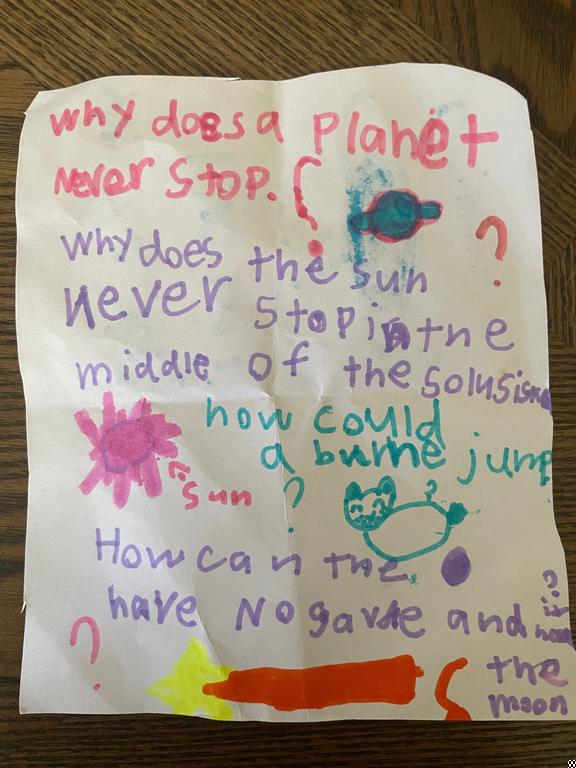 why does a planet
Never Stop. ?
?
why does the sun
never stop in tne
middle of the solusism
how could
a burne jump
sun ?
?
How can the
have No gavte and
?
the
moon
?